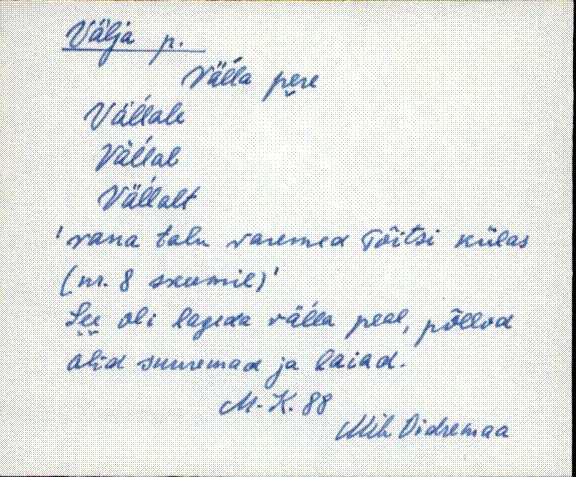 Välja p.
Välla pere
Vällale
Vällal
Vällalt
'vana talu varemed Tõitsi külas
(nr. 8 skeemil)'
See oli lageda välla peal, põllud
olid suuremad ja laiad.
M-K. 88
Mih Vidremaa